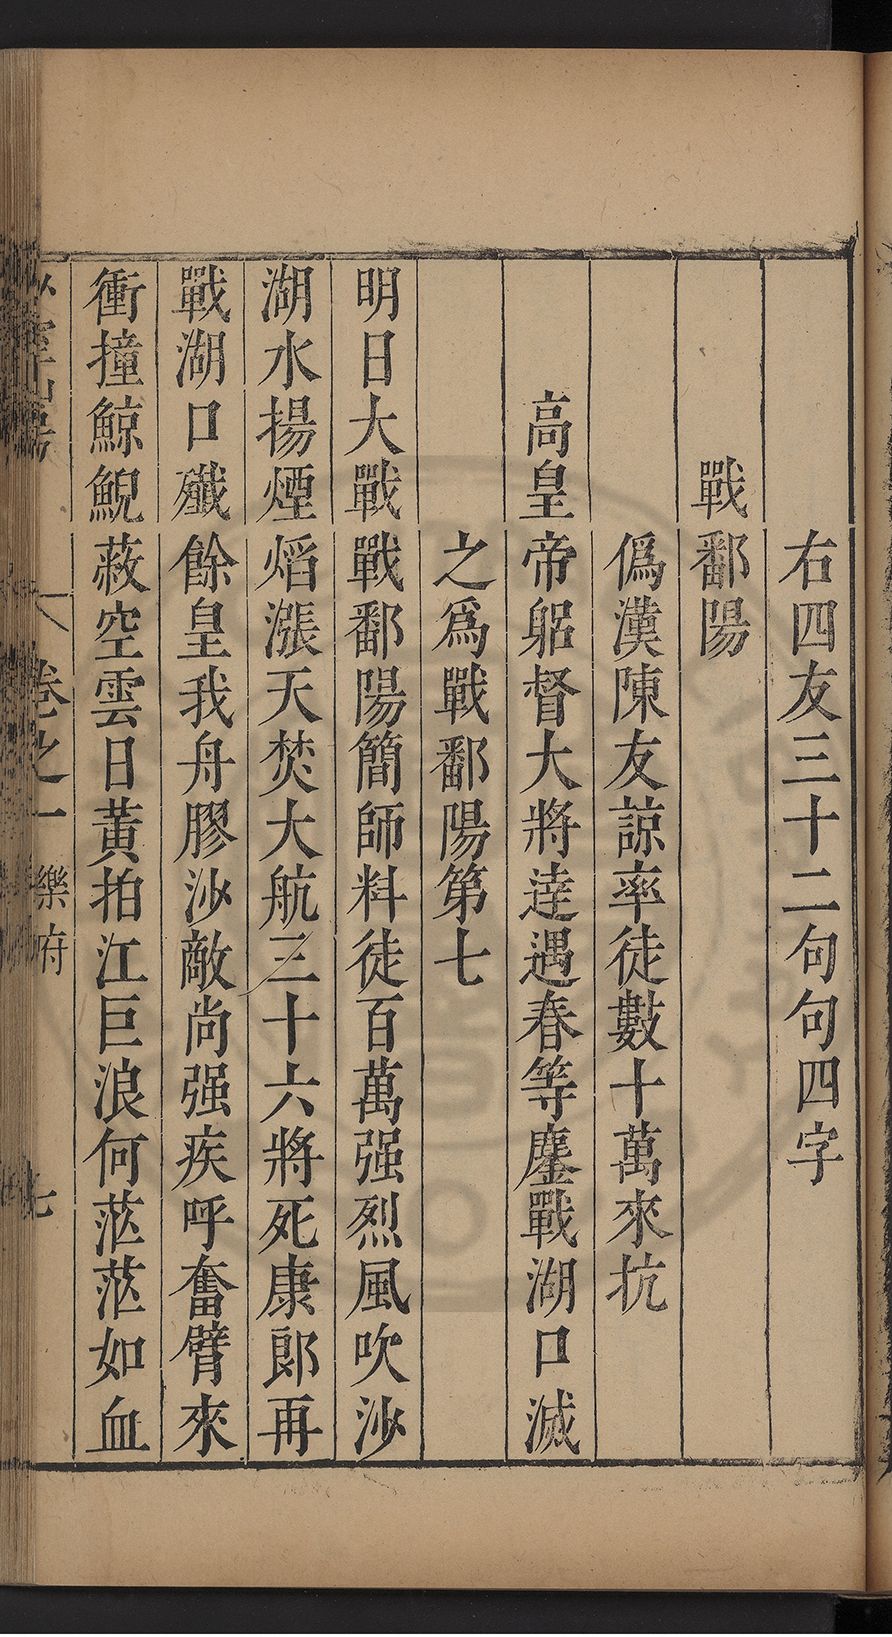 右四友三十二句句四字
戰鄱陽
偽漢陳友諒率徒數十萬來抗
高皇帝躬督大將達遇春等鏖戰湖口滅
之為戰鄱陽第七
明日大戰戰鄱陽簡師料徒百萬强烈風吹沙
湖水揚煙焰漲天焚大航三十六將死康郎再
戰湖口殲餘皇我舟膠沙敵尚强疾呼奮臂來
衝撞鯨鯢蔽空雲日黃拍江巨浪何茫茫如血
卷之一 樂府 七